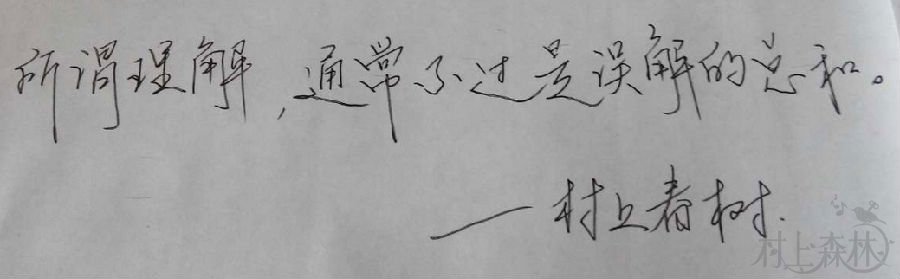 所谓理解,通常不过是误解的总和。
——村上春树.
村上森林